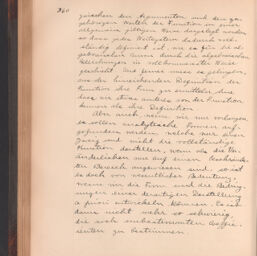 260
zwischen den Argumenten und den zu-
gehörigen Werten der Function in einer
allgemein giltigen Weise dargelegt werden
so dass jede Wertepaar dadurch voll-
ständig definiert ist wie es für die al-
gebraischen durch die algebraischen
Beziehungen in vollkommenster Weise
geschieht. Und ferner muss es gelingen,
aus der hinreichenden Definition der
Function ihre Form zu ermitteln ohne
dass wir etwas anderes von der Function
kennen als ihre Definition
Aber auch wenn wir nur verlangen,
es sollen analytische Formen auf-
gefunden werden welche nur einen
Zweig und nicht die vollständige
Function darstellen, wenn also die Ver-
änderlichen nur auf einen beschränk-
ten Bereich angewiesen sind, so ist
es doch von wesentlicher Bedeutung,
wenn wir die Form und die Bedin-
gungen einer derartigen Darstellung
a priori entwickeln können. Es ist
dann nicht mehr so schwierig,
die noch unbestimmten Coeffi-
cienten zu bestimmen